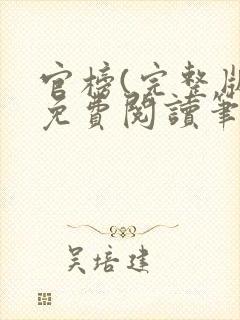 官榜(完整版
免費閱讀筆
吴培建